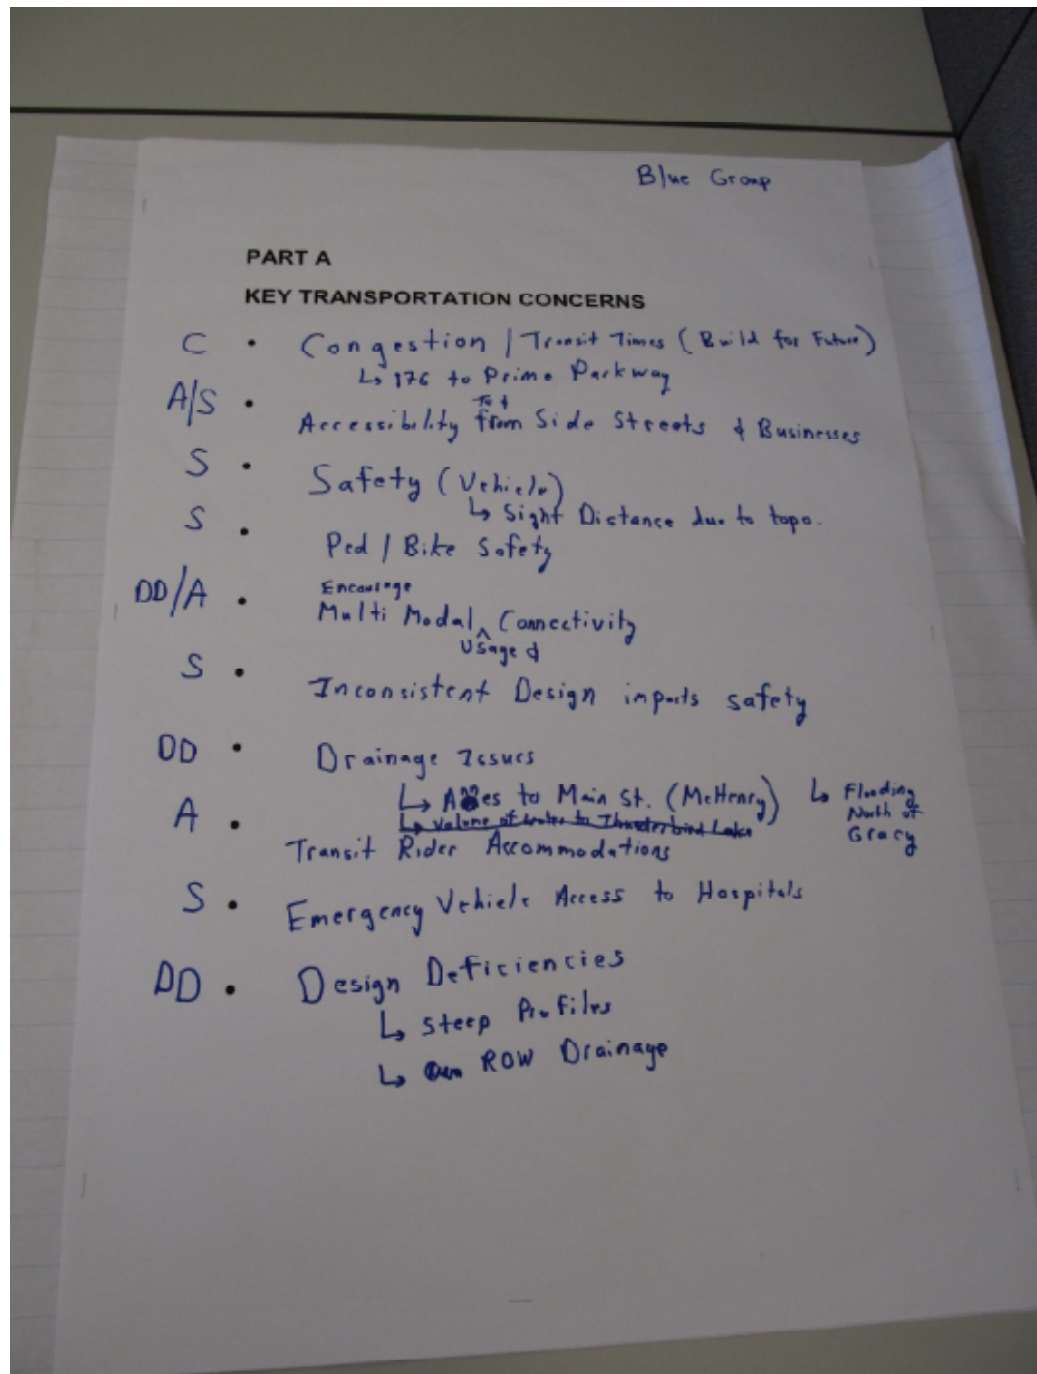 Blue Group
PART A
KEY TRANSPORTATION CONCERNS
C • Congestion / Transit Times (Build for Future)
↳ 176 to Prime Parkway
To &
A/S • Accessibility from Side Streets & Businesses
S • Safety (Vehicle)
↳ Sight Distance due to topo.
S • Ped / Bike Safety
Encourage
DD/A • Multi Modal ^ Connectivity
Usage &
S • Inconsistent Design impacts safety
DD • Drainage Issues
↳ to Main St. (McHenry) ↳ Flooding
North of
Gracy
↳ Volume of water to Thunderbird Lake
A • Transit Rider Accommodations
S • Emergency Vehicle Access to Hospitals
DD • Design Deficiencies
↳ Steep Profiles
↳ ROW Drainage